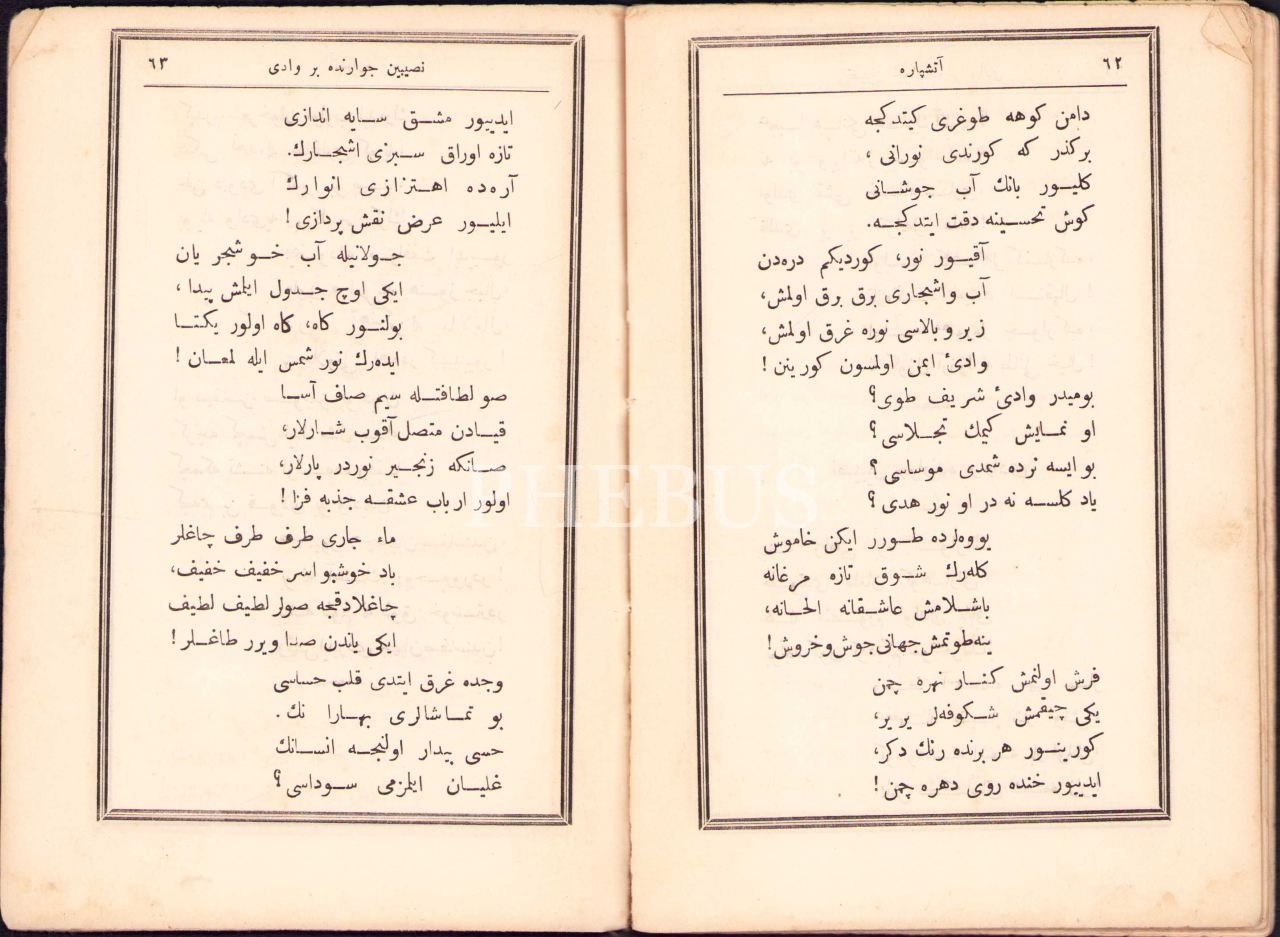 ٦٢
آتشپاره
دامن كوهه طوغری كیتدكجه
بركذر كه كورندی نورانی ،
كلیور بانك آب جوشانی
كوش تحسینه دقت ایتدكجه.
آقیور نور، كوردیكم دره‌دن
آب واشجاری برق برق اولمش،
زیر و بالاسی نوره غرق اولمش،
وادئ ایمن اولسون كورینن !
بومیدر وادئ شریف طوی؟
او نمایش كیمك تجلاسی؟
بو ایسه نرده شمدی موساسی ؟
یاد كلسه نه در او نور هدی ؟
یووه‌لرده طورر ایكن خاموش
كله‌رك شوق تازه مرغانه
باشلامش عاشقانه الحانه،
ینه طوتمش جهانی جوش و خروش!
فرش اولنمش كنار نهره چمن
یكی چیقمش شكوفه‌لر یر یر،
كورینور هر برنده رنك دكر،
ایدییور خنده روی دهره چمن !
نصیبین جوارنده بر وادی
٦٣
ایدییور مشق سایه اندازی
تازه اوراق سبزی اشجارك.
آره‌ده اهتزازی انوارك
ایلیور عرض نقش پردازی !
جولانیله آب خوشجریان
ایكی اوچ جدول ایلمش پیدا ،
بولنور كاه، كاه اولور یكتا
ایده‌رك نور شمس ایله لمعان !
صو لطافتله سیم صاف آسا
قیادن متصل آقوب شارلار،
صانكه زنجیر نوردر پارلار،
اولور ارباب عشقه جذبه فزا !
ماء جاری طرف طرف چاغلر
باد خوشبو اسر خفیف خفیف،
چاغلادقجه صولر لطیف لطیف
ایكی یاندن صدا ویرر طاغلر !
وجده غرق ایتدی قلب حساسی
بو تماشالری بهارا نك .
حسی بیدار اولنجه انسانك
غلیان ایلمزمی سوداسی ؟
PHEBUS